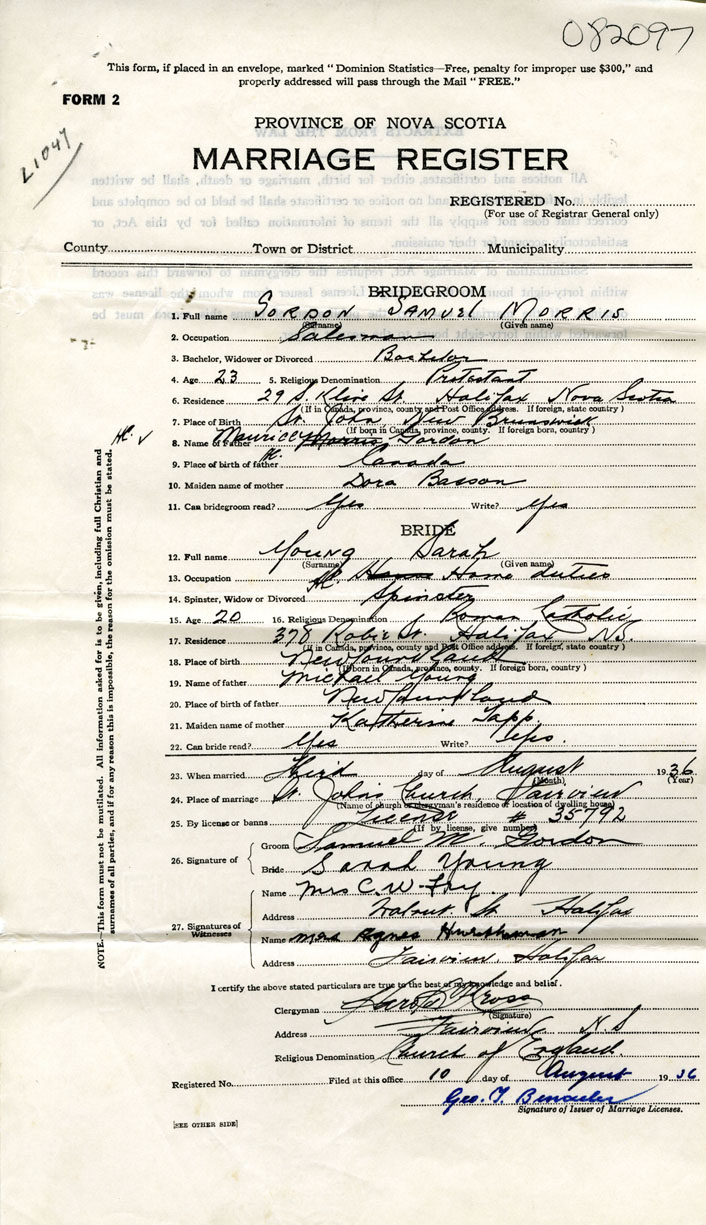 082097
This form, if placed in an envelope, marked "Dominion Statistics—Free, penalty for improper use $300," and
properly addressed will pass through the Mail "FREE."
FORM 2
L1047
PROVINCE OF NOVA SCOTIA
MARRIAGE REGISTER
REGISTERED No.
(For use of Registrar General only)
County Town or District Municipality
BRIDEGROOM
1. Full name GORDON SAMUEL MORRIS
(Surname) (Given name)
2. Occupation Salesman
3. Bachelor, Widower or Divorced Bachelor
4. Age 23 5. Religious Denomination Protestant
6. Residence 29 S. Kline St. Halifax Nova Scotia
(If in Canada, province, county and Post Office address. If foreign, state country)
7. Place of Birth St. John New Brunswick
(If born in Canada, province, county. If foreign born, country)
8. Name of Father Maurice Morris Gordon
9. Place of birth of father Canada
10. Maiden name of mother Dora Basson
11. Can bridegroom read? Yes Write? Yes
BRIDE
12. Full name Young Sarah
(Surname) (Given name)
13. Occupation Home duties
14. Spinster, Widow or Divorced Spinster
15. Age 20 16. Religious Denomination Roman Catholic
17. Residence 378 Robie St. Halifax N.S.
(If in Canada, province, county and Post Office address. If foreign, state country)
18. Place of birth Newfoundland
(If born in Canada, province, county. If foreign born, country)
19. Name of father Michael Young
20. Place of birth of father Newfoundland
21. Maiden name of mother Katherine Tapp
22. Can bride read? Yes Write? Yes.
23. When married third day of August 1936
(Month) (Year)
24. Place of marriage St. John's Church, Fairview
(Name of church or clergyman's residence or location of dwelling house)
25. By license or banns License # 35792
(If by license, give number)
26. Signature of Groom Samuel M. Gordon
Bride Sarah Young
27. Signatures of Witnesses
Name Mrs C. W. Fry
Address Walnut St Halifax
Name Mrs Agnes
Address Fairview, Halifax
I certify the above stated particulars are true to the best of my knowledge and belief.
Clergyman
(Signature)
Address Fairview N.S
Religious Denomination Church of England.
Registered No. Filed at this office 10 day of August 1936
Geo. T.
Signature of Issuer of Marriage Licenses.
[SEE OTHER SIDE]
NOTE.—This form must not be mutilated. All information asked for is to be given, including full Christian and
surnames of all parties, and if for any reason this is impossible, the reason for the omission must be stated.